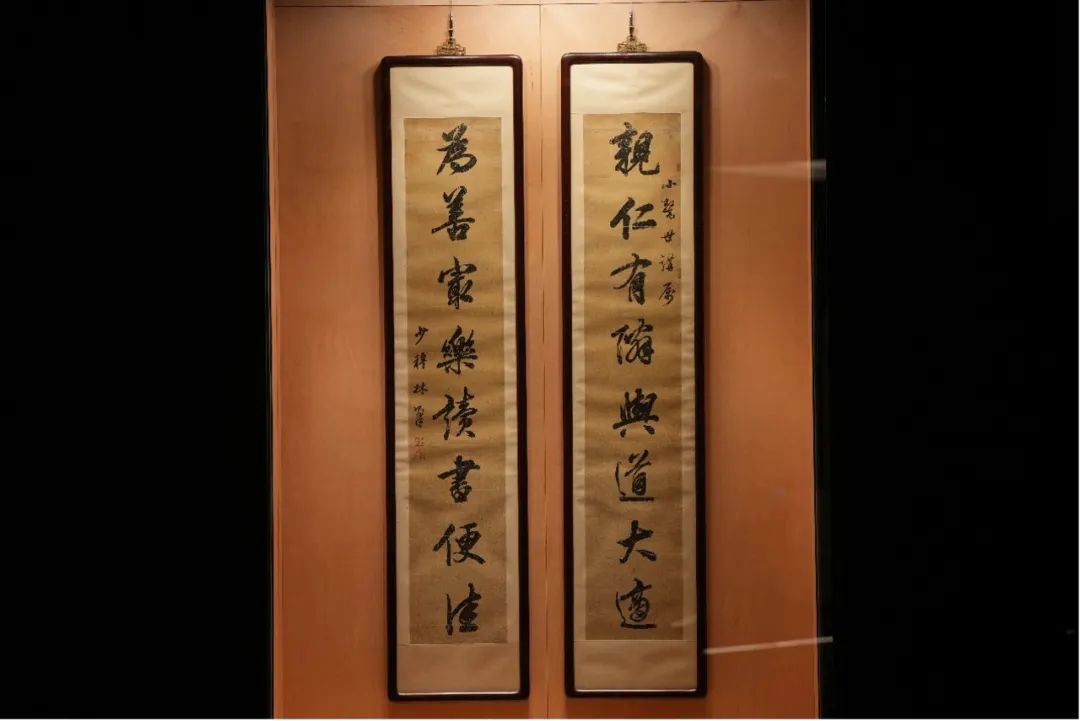 親仁有隣與道大適
小世講屬
為善㝡樂讀書便佳
少穆林則徐